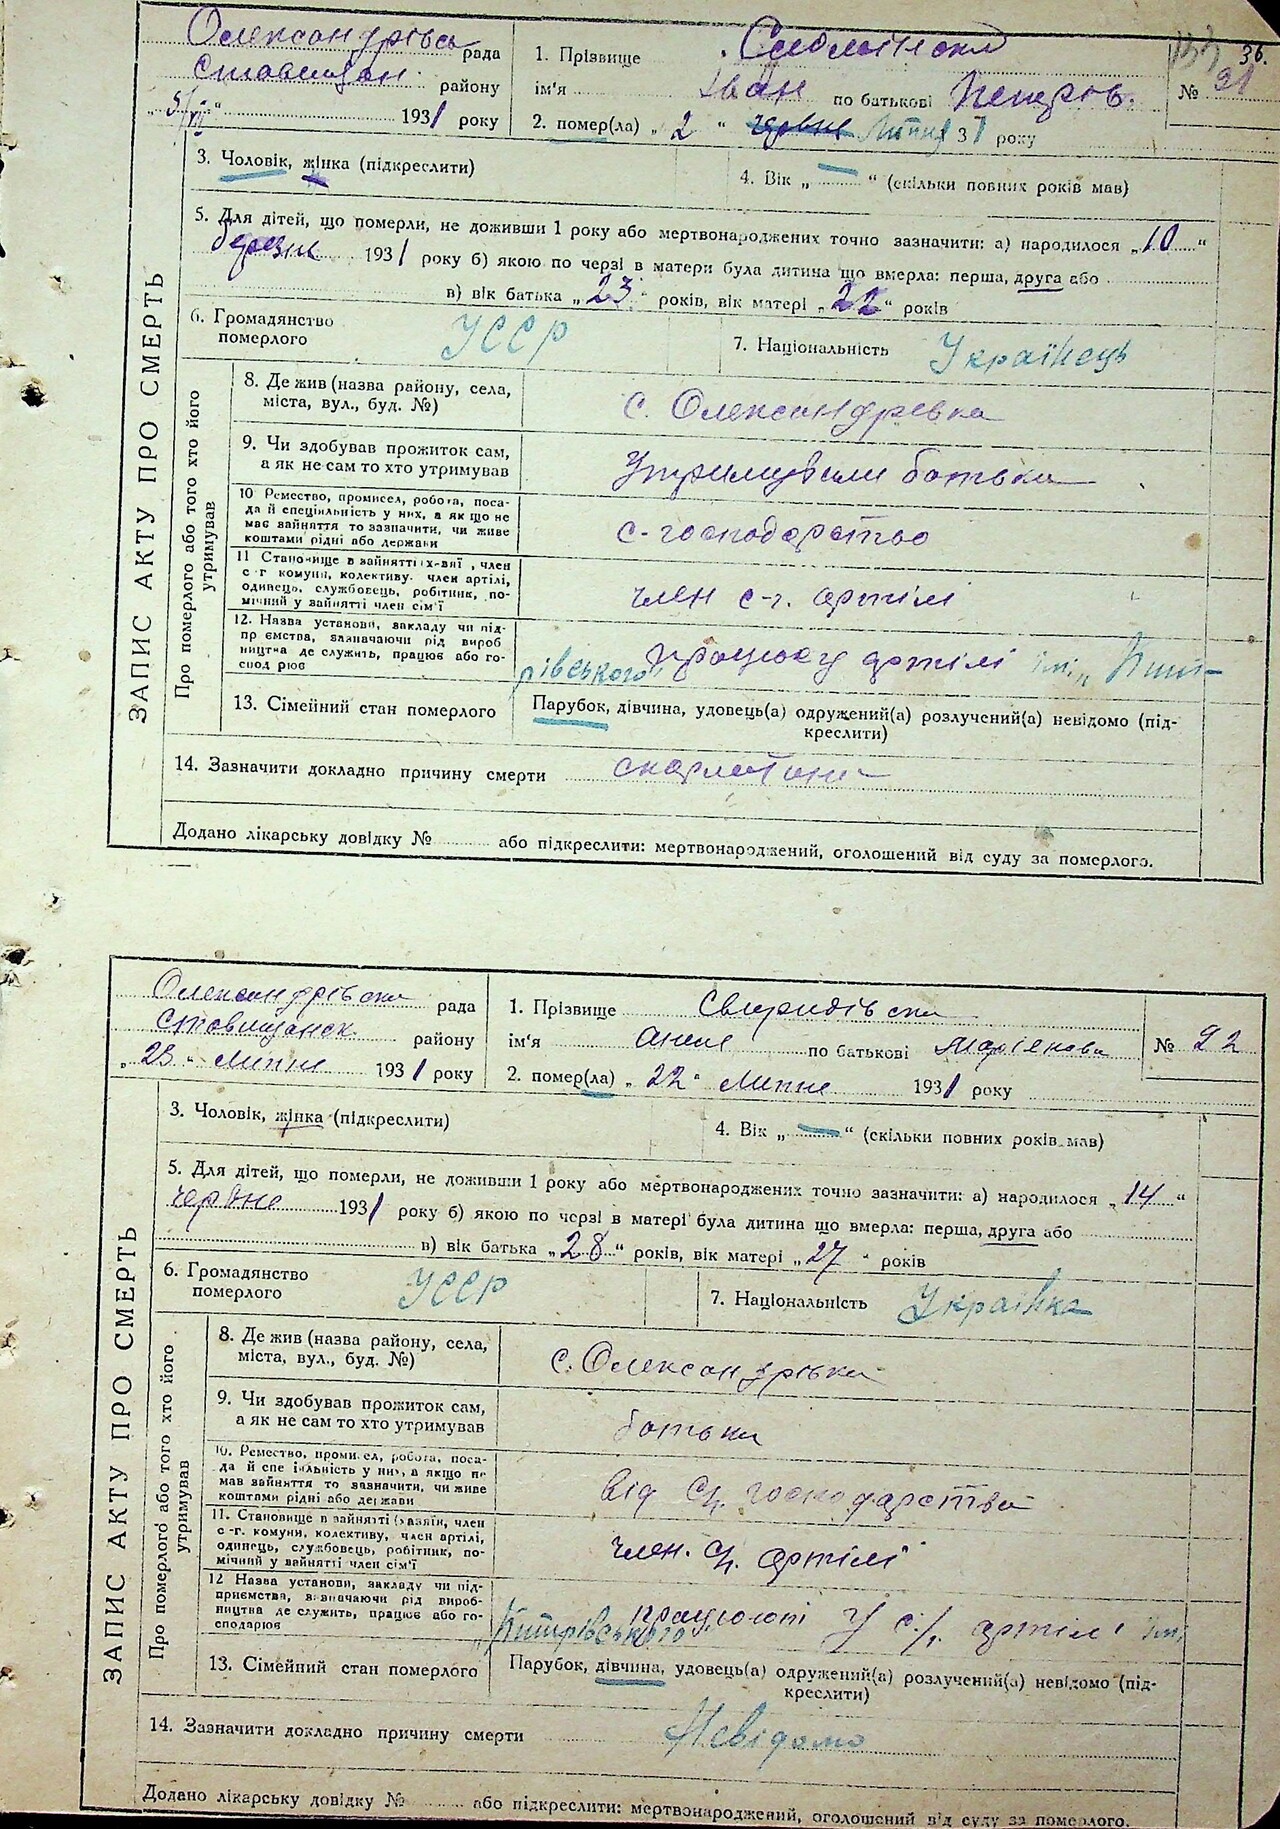 36.
Олександрівськ рада
1. Прізвище
№ 91
Ставищан. району
ім'я Іван по батькові Петров.
„5/VII“ 1931 року
2. помер(ла) „2“ червня Липня 31 року
ЗАПИС АКТУ ПРО СМЕРТЬ
3. Чоловік, жінка (підкреслити)
4. Вік „ — “ (скільки повних років мав)
5. Для дітей, що померли, не доживши 1 року або мертвонароджених точно зазначити: а) народилося „10“
березня 1931 року б) якою по черзі в матери була дитина що вмерла: перша, друга або
в) вік батька „23“ років, вік матері „22“ років
6. Громадянство померлого УССР
7. Національність Українець
Про померлого або того хто його утримував
8. Де жив (назва району, села,
міста, вул., буд. №)
с. Олександрівка
9. Чи здобував прожиток сам,
а як не сам то хто утримував
Утримували батьки
10 Ремество, промисел, робота, поса-
да й спеціяльність у них, а як що не
має зайняття то зазначити, чи живе
коштами рідні або держави
с-господарство
11 Становище в зайнятті х-вяї, член
с-г комуни, колективу член артілі,
одинець, службовець, робітник, по-
мічний у зайнятті член сім'ї
член с-г. артілі
12. Назва установи, закладу чи під-
пр ємства, зазначаючи рід вироб
ництва де служить, працює або го-
спод рює
працює у артілі імі „Пит-
рівського“
13. Сімейний стан померлого
Парубок, дівчина, удовець(а) одружений(а) розлучений(а) невідомо (під-
креслити)
14. Зазначити докладно причину смерти скарлатина
Додано лікарську довідку № або підкреслити: мертвонароджений, оголошений від суду за померлого.
Олександрівська рада
1. Прізвище Свиридівська
№ 92
Ставищанськ району
ім'я по батькові Мар'янова
„23“ Липня 1931 року
2. помер(ла) „22“ Липня 1931 року
ЗАПИС АКТУ ПРО СМЕРТЬ
3. Чоловік, жінка (підкреслити)
4. Вік „ — “ (скільки повних років мав)
5. Для дітей, що померли, не доживши 1 року або мертвонароджених точно зазначити: а) народилося „14“
червня 1931 року б) якою по черзі в матері була дитина що вмерла: перша, друга або
в) вік батька „28“ років, вік матері „27“ років
6. Громадянство померлого УССР
7. Національність Українка
Про померлого або того хто його утримував
8. Де жив (назва району, села,
міста, вул., буд. №)
с. Олександрівка
9. Чи здобував прожиток сам,
а як не сам то хто утримував
батьки
10. Ремество, промисел, робота, поса-
да й спеціяльність у них, а якщо не
мав зайняття то зазначити, чи живе
коштами рідні або держави
від сг. господарства
11. Становище в зайнятті (хазяїн, член
с-г. комуни, колективу, член артілі,
одинець, службовець, робітник, по-
мічний у зайнятті член сім'ї
член. сг. артілі
12 Назва установи, закладу чи під-
приємства, визначаючи рід вироб-
ництва де служить, працює або го-
сподарює
працюють у с/г. артілі імі
„Питрівського
13. Сімейний стан померлого
Парубок, дівчина, удовець(а) одружений(а) розлучений(а) невідомо (під-
креслити)
14. Зазначити докладно причину смерти Невідомо
Додано лікарську довідку № або підкреслити: мертвонароджений, оголошений від суду за померлого.